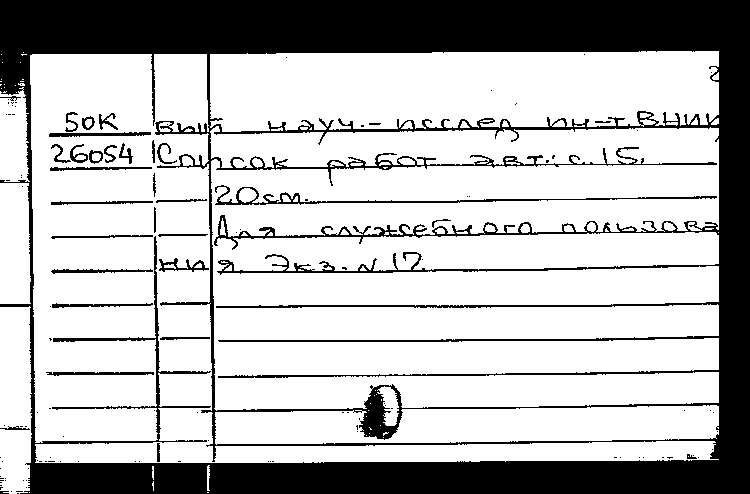 2
50К вый науч.-исслед ин-т. ВНИИ
26054 Список работ авт.: с. 15.
20см.
Для служебного пользова
ния. Экз. N 17.